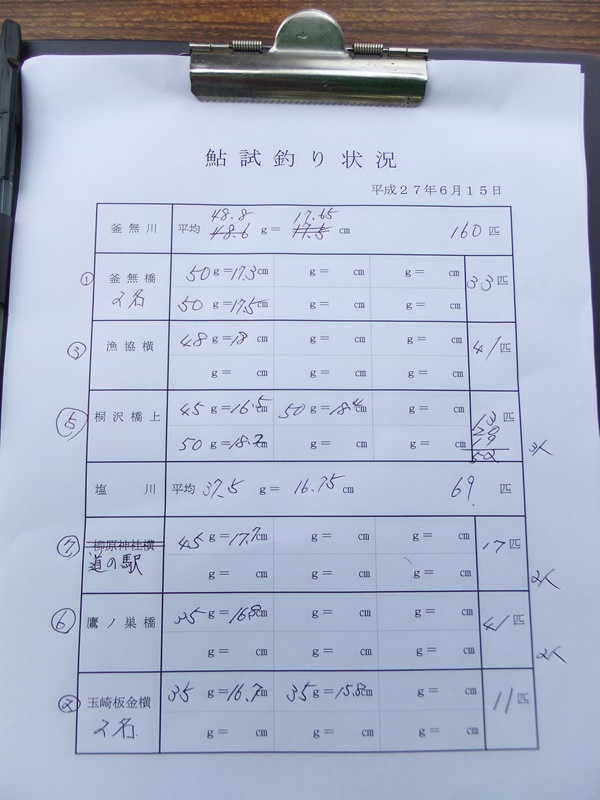 鮎試釣り状況
平成27年6月15日
釜無川 平均 48.8 48.6 g= 17.65 17.5 cm 160 匹
① 釜無橋 50 g=17.3cm g= cm g= cm 33匹
2名 50 g=17.5cm g= cm g= cm
③ 漁協横 48 g=18 cm g= cm g= cm 41匹
g= cm g= cm g= cm
⑤ 桐沢橋上 45 g=16.5cm 50 g=18.4cm g= cm 匹
50 g=18.2cm g= cm g= cm 52
塩川 平均 37.5 g= 16.75 cm 69 匹
⑦ 柳原神社横 45 g=17.7cm g= cm g= cm 17匹
道の駅 g= cm g= cm g= cm 2人
⑥ 鷹ノ巣橋 35 g=16.8cm g= cm g= cm 41匹
g= cm g= cm g= cm 2人
② 玉崎板金横 35 g=16.7cm 35 g=15.8cm g= cm 11匹
2名 g= cm g= cm g= cm